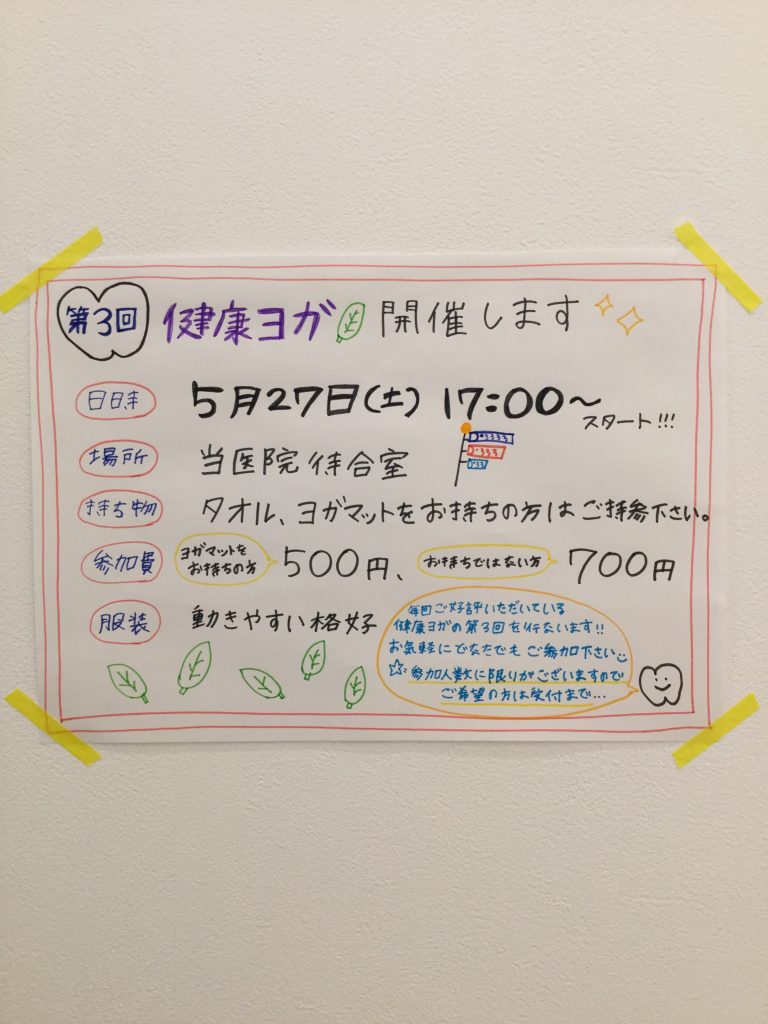 第3回 健康ヨガ 開催します
日時 5月27日(土) 17:00〜
スタート!!!
場所 当医院待合室
持ち物 タオル、ヨガマットをお持ちの方はご持参下さい。
参加費 ヨガマットを
お持ちの方 500円、 お持ちではない方 700円
服装 動きやすい格好
毎回ご好評いただいている
健康ヨガの第3回を行ないます!!
お気軽にどなたでもご参加下さい
☆参加人数に限りがございますので
ご希望の方は受付まで...